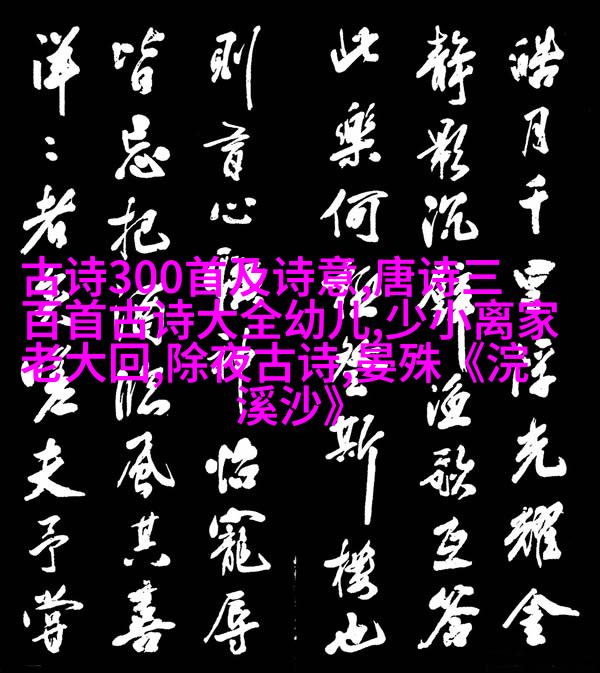 皓月千里浮光耀金
静影沉璧渔歌互答
此樂何极登斯楼也
則有心曠神怡寵辱
皆忘把酒临風其喜
洋:者矣嗟夫予嘗
古诗300首及诗意,唐诗三
百首古诗大全幼儿,少小离家
老大回,除夜古诗,晏殊《浣
溪沙》